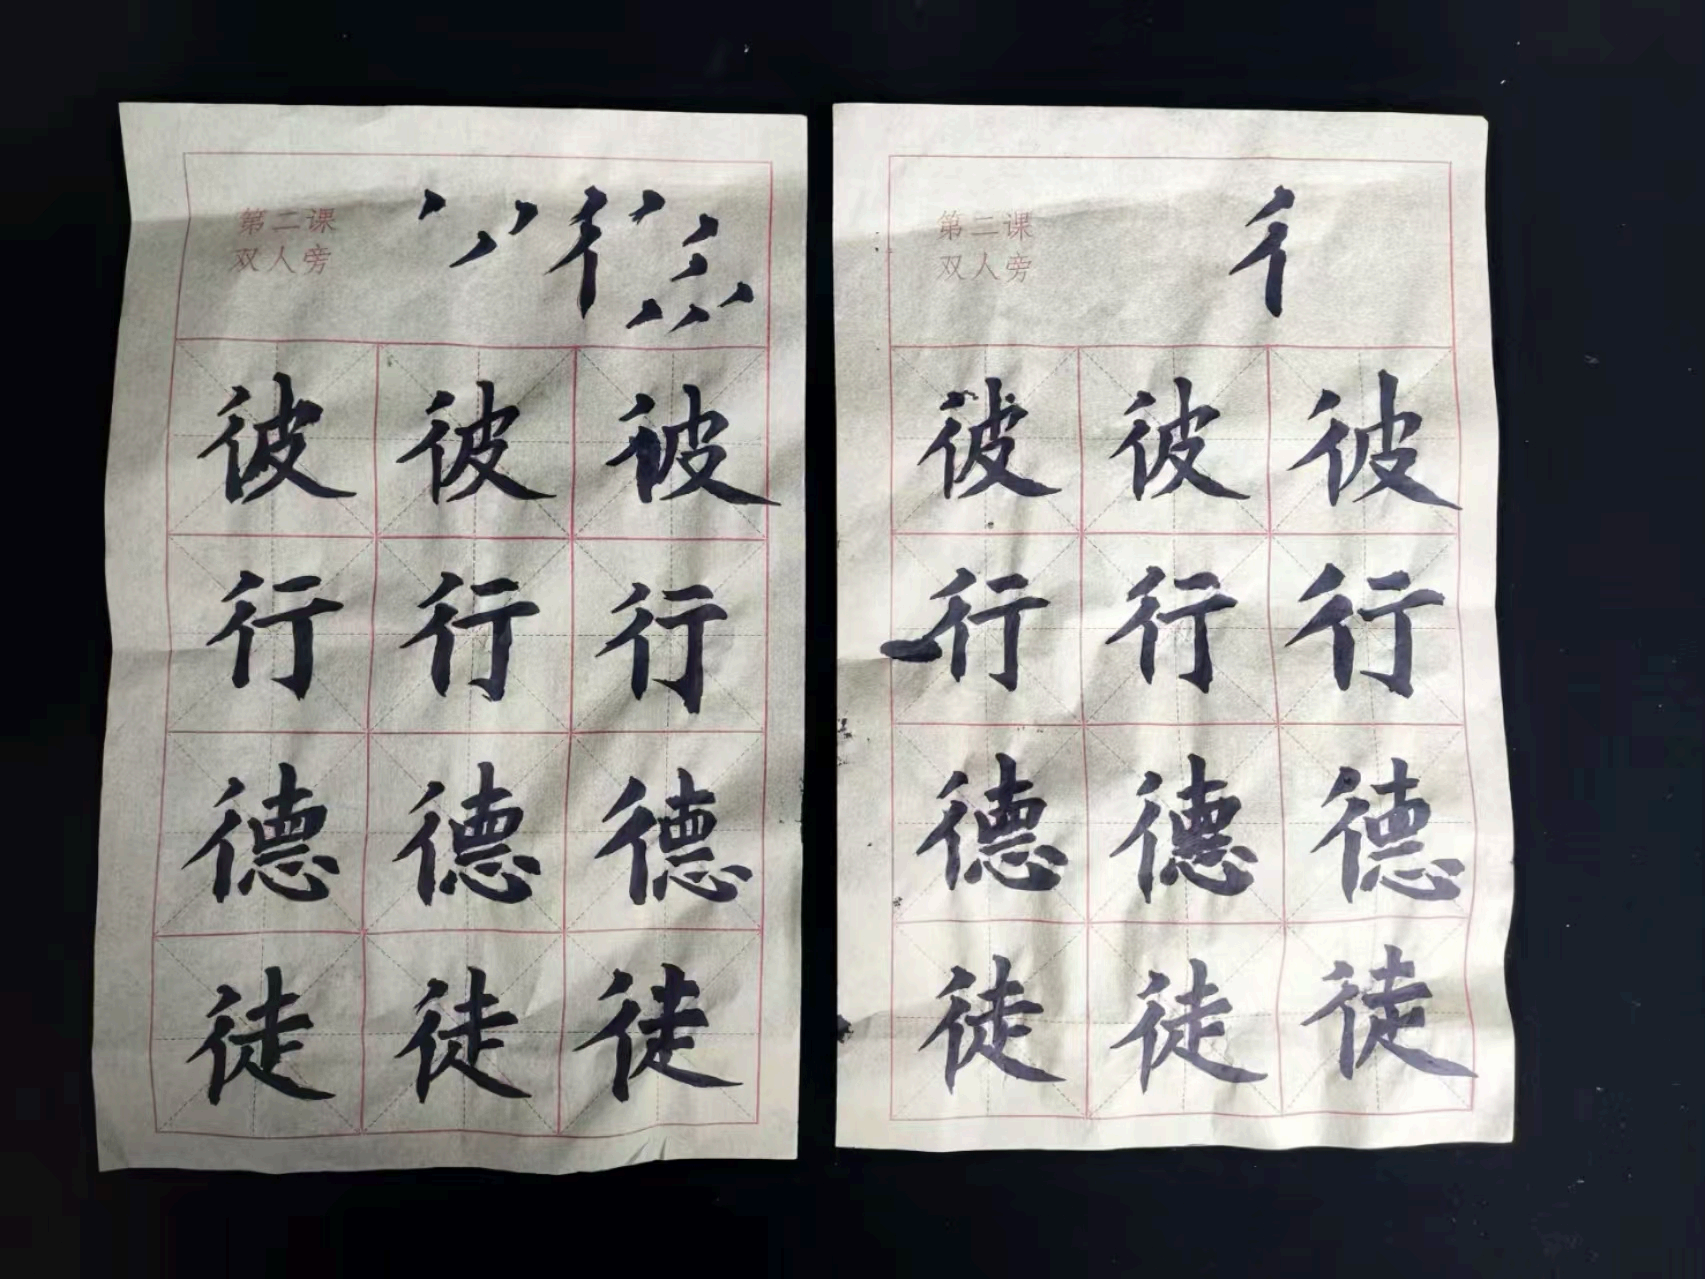 第二课
双人旁
彳
彼彼彼
行行行
德德德
徒徒徒
第二课
双人旁
彳
彼彼彼
行行行
德德德
徒徒徒